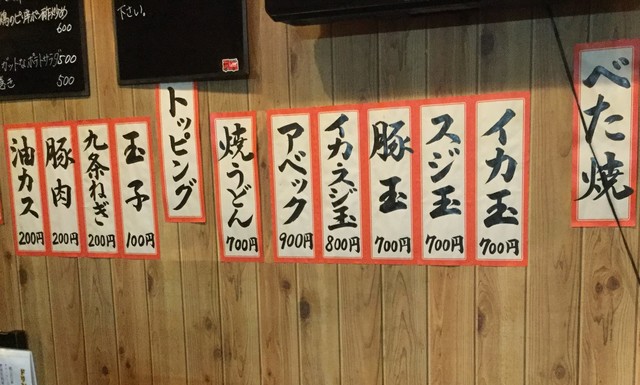 べた焼
イカ玉
700円
スジ玉
700円
豚玉
700円
イカスジ玉
800円
アベック
900円
焼うどん
700円
トッピング
玉子
100円
九条ねぎ
200円
豚肉
200円
油カス
200円
下さい。
600
ポテトサラダ500
巻き 500